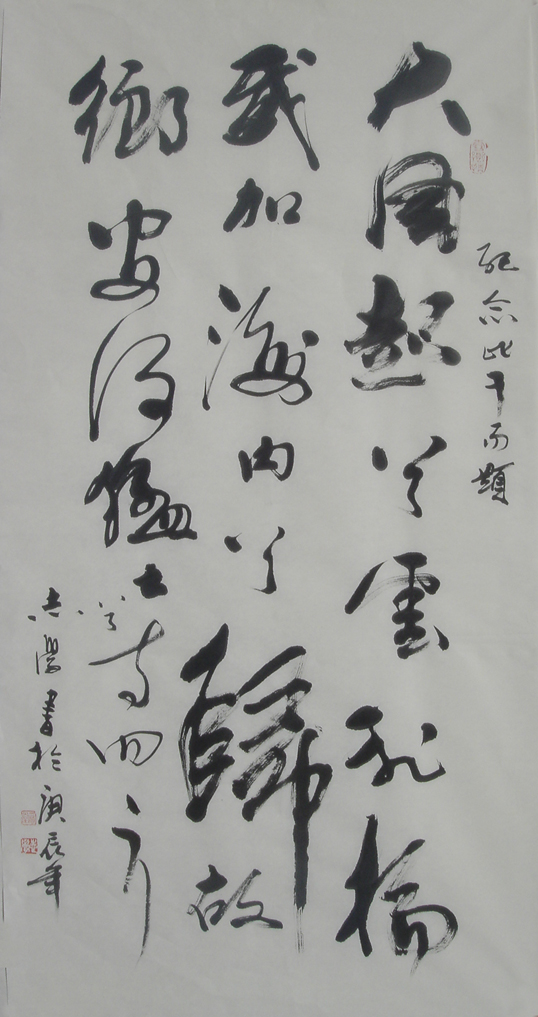 紀念比干而題
大風起兮雲飛揚
威加海内兮歸故
鄉安得猛士兮守四方
志學書於庚辰年